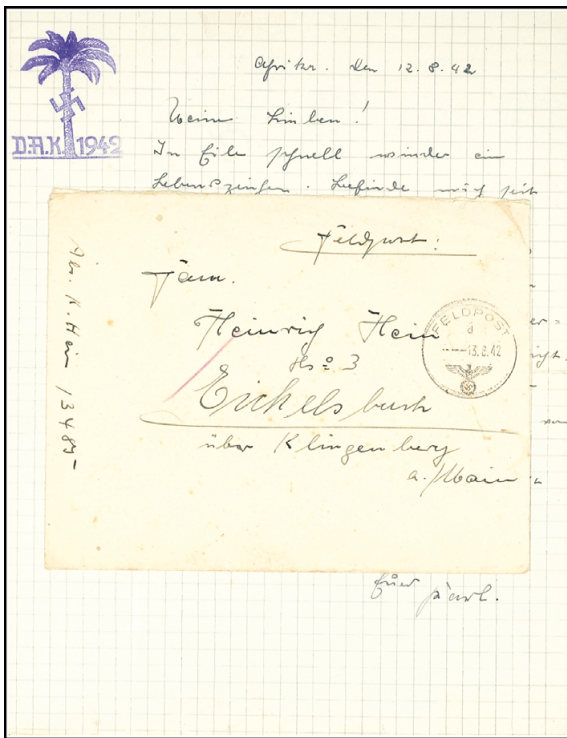 D.A.K. 1942
Afrika. den 12.8.42
Meine Lieben!
In Eile schnell wieder ein
Lebenszeichen. Befinde mich seit
Feldpost:
Fam.
Heinrich Hein
Hs № 3
Eichelsbach
über Klingenberg
a. Main
FELDPOST
a
13.8.42
Abs. K. Hein 13485
Euer Karl.